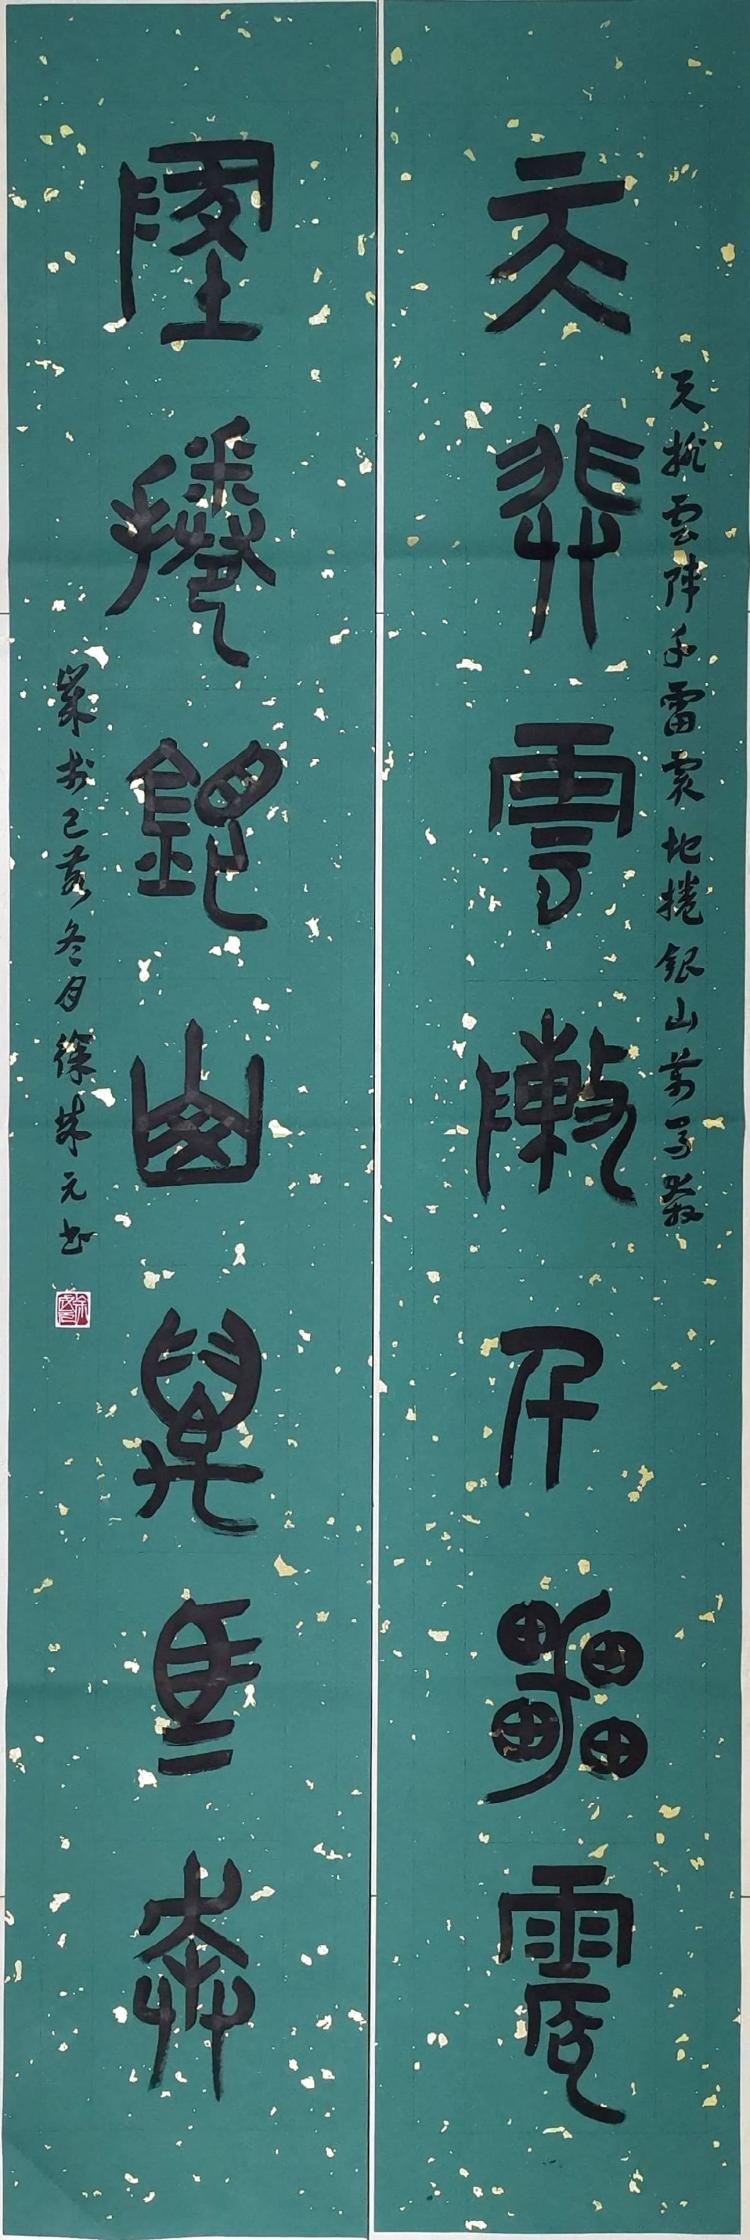 天排雲陣千雷震
天排雲陣千雷震地捲銀山萬馬奔
地捲銀山萬馬奔
歲於己亥冬月徐成元书